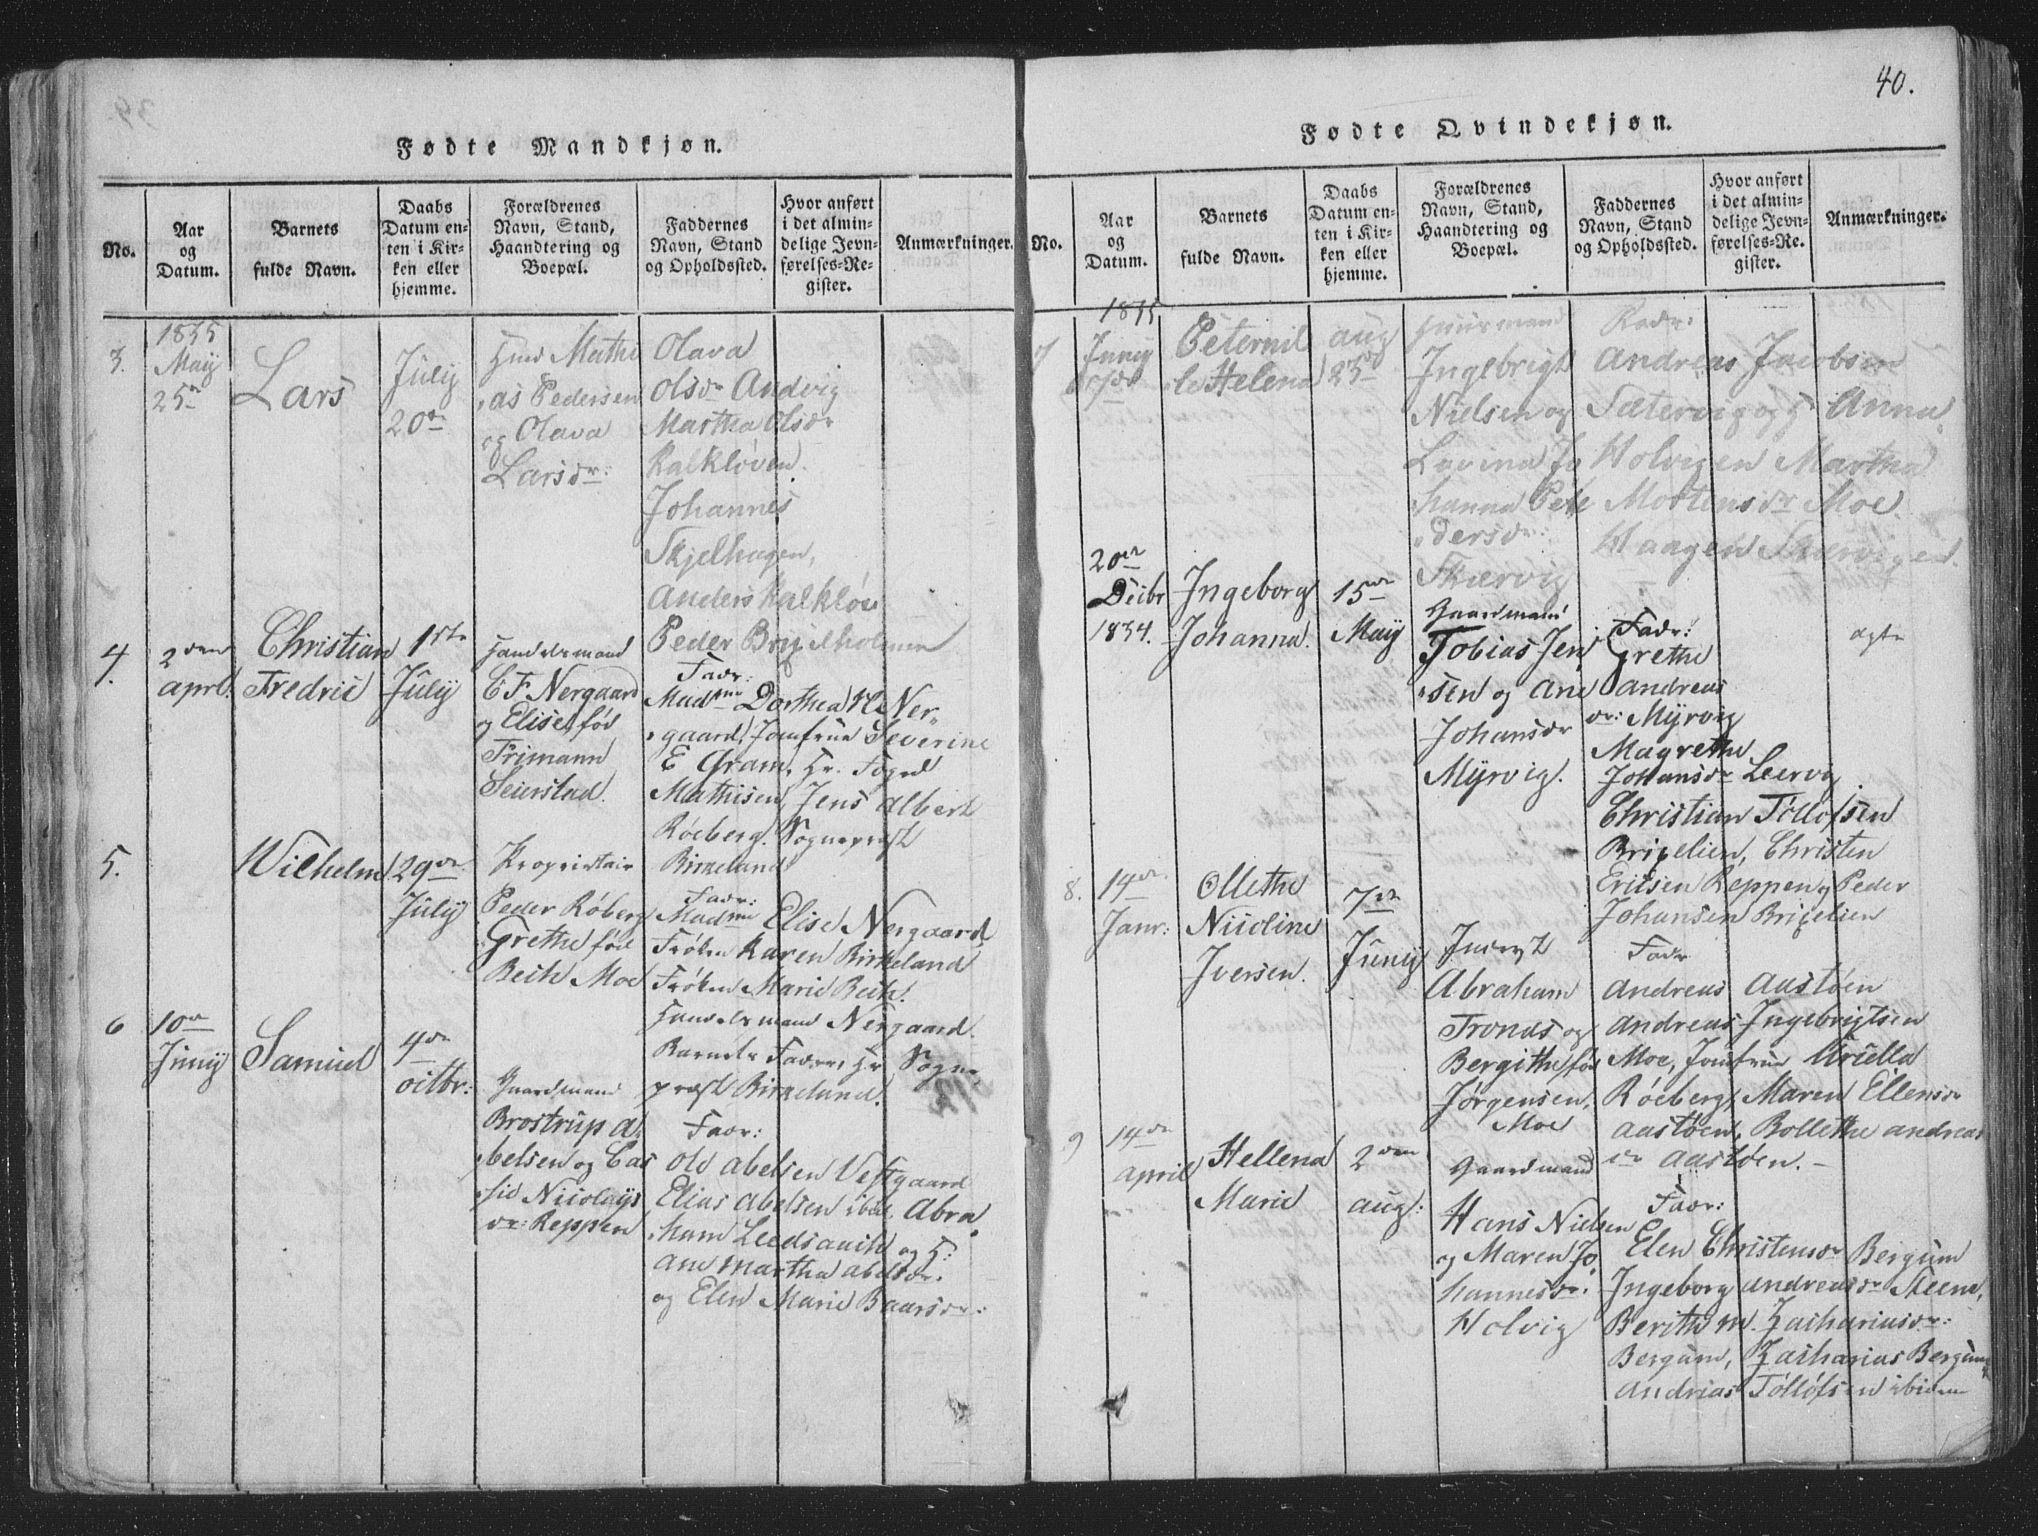 40.
Fødte Mandkjøn.
No.
Aar og Datum.
Barnets fulde Navn.
Daabs Datum enten i Kirken eller hjemme.
Forældrenes Navn, Stand, Haandtering og Boepæl.
Faddernes Navn, Stand og Opholdssted.
Hvor anført i det almindelige Jevnførelses-Register.
Anmærkninger.
3.
1835
May
25de
Lars
July
20de
Huusm Mathi
as Pedersen
og Olava
Larsdr:
Olava
Olsdr Andvig
Martha Olsdr
Kalkløven.
Johannes
Skjelhagen,
Anders Kalkløv
Peder
4.
2den
aprl.
Christian
Fredric
1ste
July
Handelsmand
C F Nergaard
og Elise, fød
Frimann
Seierstad.
Fadr:
Madme Dorthea H Ner-
gaard, Jomfrue Severine
E Gram, Hr. Foged
Mathisen, Jens Albert
Röeberg. Sognepræst
Birkeland
5.
Wilhelm
29de
July
Proprietair
Peder Röberg
Grethe fød
Bech Moe
Fadr:
Madme Elise Nergaard
Frøken Karen Birkeland
Frøken Marie Bech.
Handelsmand Nergaard.
Barnets Fader, Hr Sogne-
præst Birkeland.
6
10de
Juny
Samuel
4de
octbr:
Gaardmand
Brostrup A-
belsen og Cas
sie Nicolays
dr: Reppen
Fadr:
Ole Abelsen Vestgaard
Elias Abelsen ibd. Abra-
ham Leedsaich og H:
Ane Martha Abelsdr.
og Elen Marie Baarsdr:
Fødte Qvindekjøn.
No.
Aar og Datum.
Barnets fulde Navn.
Daabs Datum enten i Kirken eller hjemme.
Forældrenes Navn, Stand, Haandtering og Boepæl.
Faddernes Navn, Stand og Opholdssted.
Hvor anført i det almindelige Jevnførelses-Register.
Anmærkninger.
7
1835
Juny
Peternil
le Helena
aug
23de
Huusmand
Ingebrigt
Nielsen og
Lovina Jo
hanna Pete
dersdr:
Skærvig
Fadr:
Andreas Jacobsen
Sætervig og H Anna
Holvigen Martha
Mortensdr Moe
Haagen Skærvigen.
20de
Decbr
1834.
Ingeborg
Johanna.
15de
May
Gaardmand
Tobias Jen
sen og Ane
Johansdr
Myrvig.
Fadr:
Grethe
Andreas
dr: Myrvig
Magrethe
Johansdr Leervig
Christian Tollofsen
Brigelien, Christen
Ericsen Reppen og Peder
Johansen Brigelien
agte
8.
14de
Janr:
Ollethe
Nicoline
Iversen.
7de
Juny
Inderst
Abraham
Tronds og
Bergithe fød
Jørgensen,
Moe
Fadr
Andreas Aastøen
Andreas Ingebrigtsen
Moe, Jomfrue Uriella
Röeberg, Maren Ellensdr
Aastøen, Bollethe Andreas
dr Aastøen.
9
14de
April
Hellena
Marie
2den
aug:
Gaardmand
Hans Nielsen
og Maren Jo
hannesdr.
Holvig
Fadr:
Elen Christensdr Bergum
Ingeborg Andreasdr Steene,
Berith M. Zachariasdr:
Bergum, Zacharias Bergum
Andrias Tollofsen ibidem